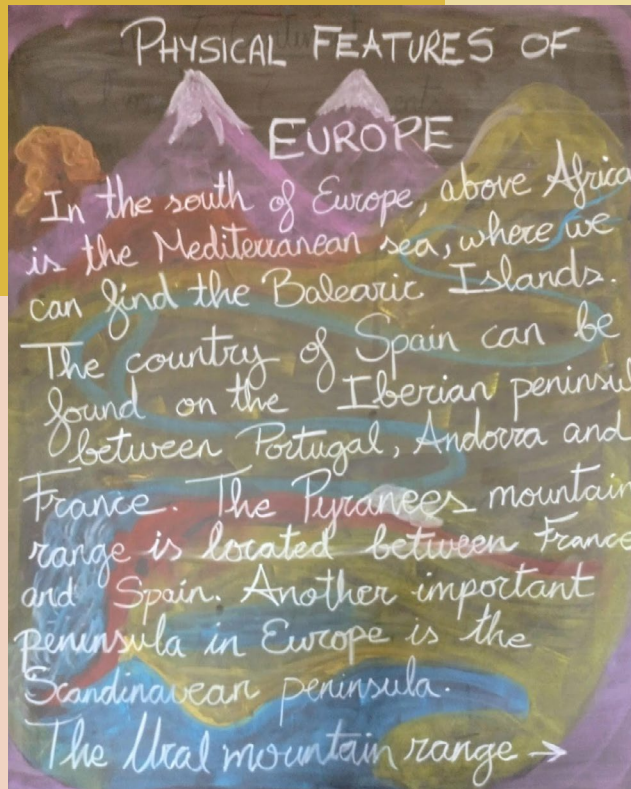 PHYSICAL FEATURES OF
EUROPE
In the south of Europe, above Africa
is the Mediterranean sea, where we
can find the Balearic Islands.
The country of Spain can be
found on the Iberian peninsul
between Portugal, Andorra and
France. The Pyranees mountain
range is located between France
and Spain. Another important
peninsula in Europe is the
Scandinavean peninsula.
The Ural mountain range →